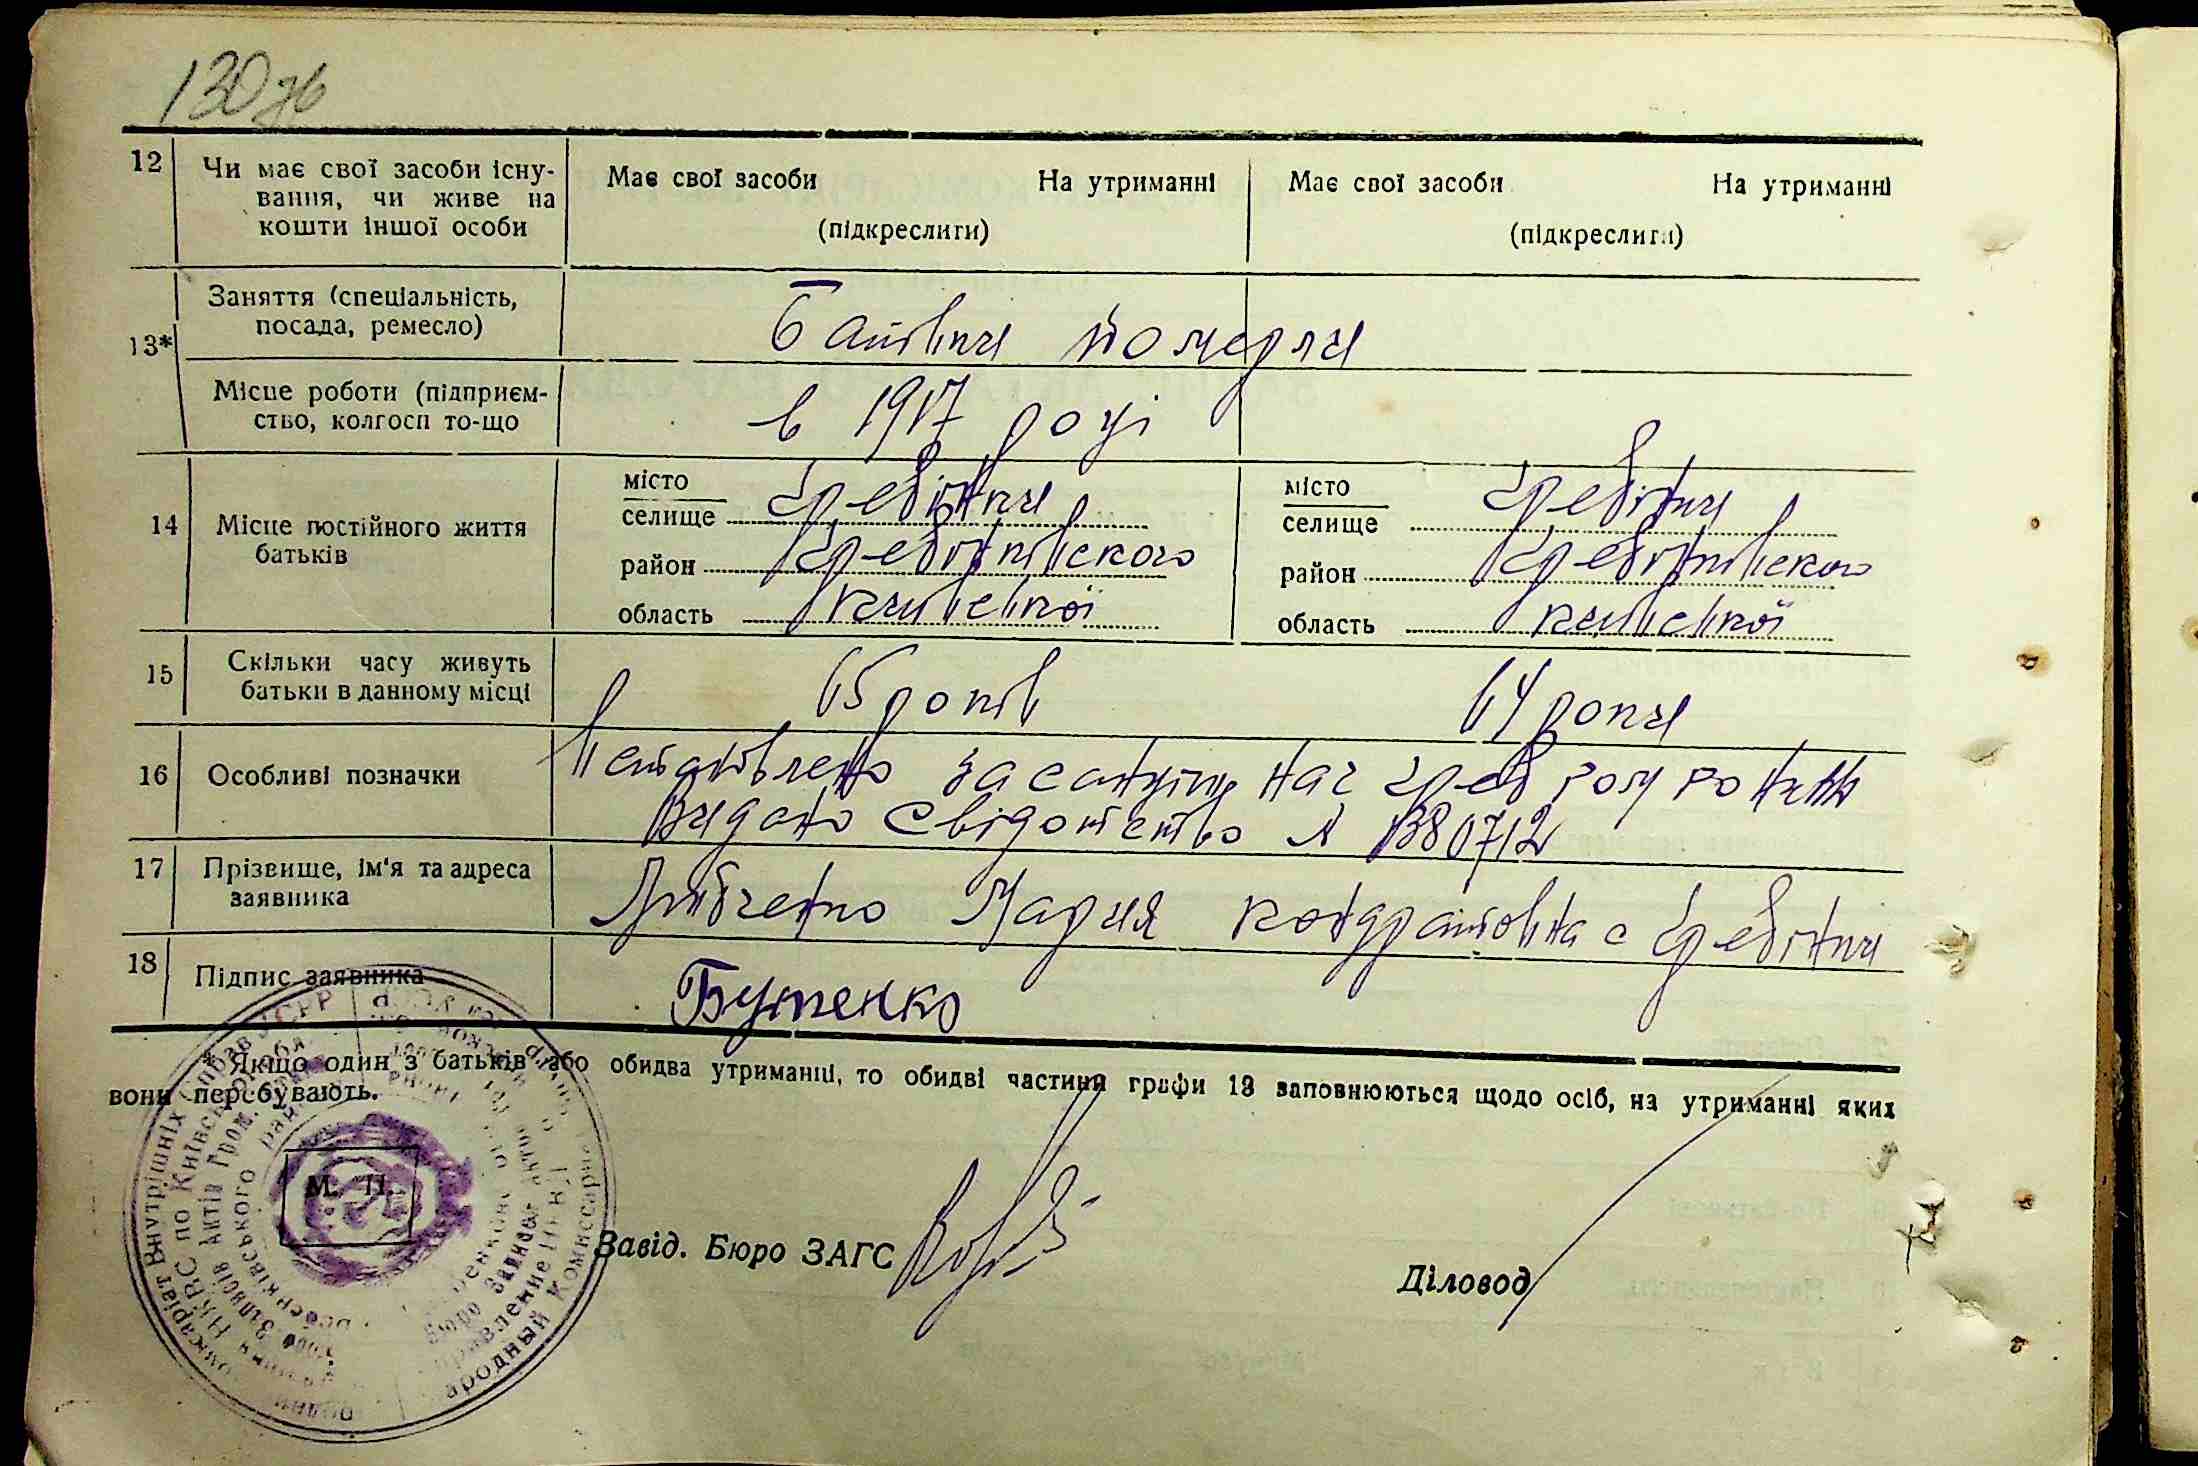 130 зв
12 Чи має свої засоби існу-
вання, чи живе на
кошти іншої особи
Має свої засоби На утриманні
(підкреслити)
Має свої засоби На утриманні
(підкреслити)
13* Заняття (спеціальність,
посада, ремесло)
Батьки померли
Місце роботи (підприєм-
ство, колгосп то-що
в 1917 році
14 Місце постійного життя
батьків
місто
селище Гребінки
район Гребінківского
область київської
місто
селище Гребінки
район Гребінківского
область київської
15 Скільки часу живуть
батьки в данному місці
65 років
64 роки
16 Особливі позначки
Встановлено за санкцією нач греб
Видано свідотство № 380712
17 Прізвище, ім'я та адреса
заявника
Мария кондратовна с Гребінки
18 Підпис заявника
Бутенко
* Якщо один з батьків або обидва утриманці, то обидві частини графи 13 заповнюються щодо осіб, на утриманні яких
вони перебувають.
М. П.
Завід. Бюро ЗАГС
Діловод